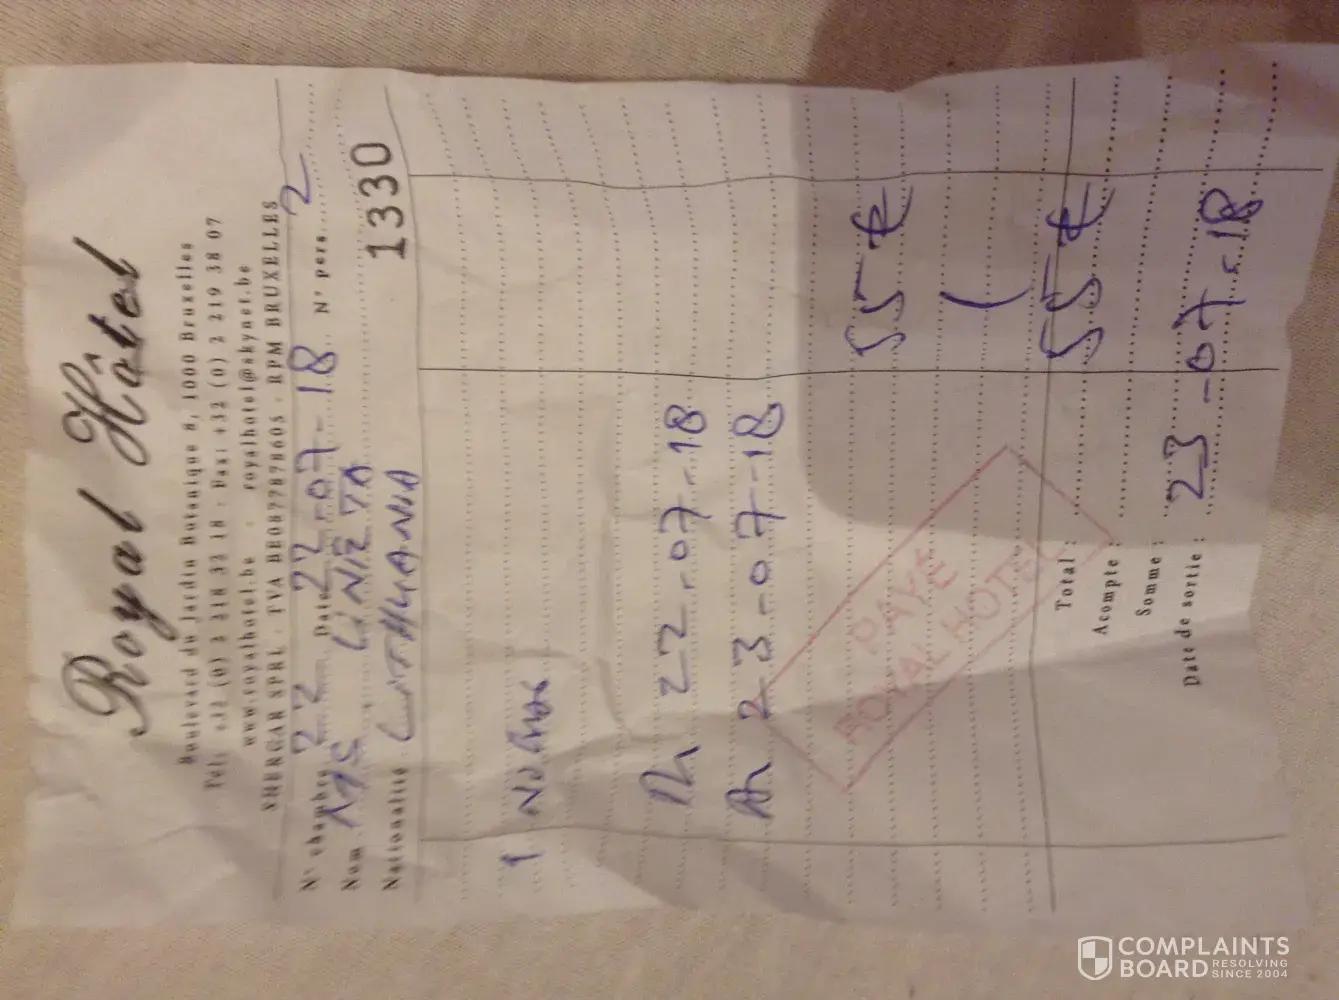 Royal Hôtel
Boulevard du Jardin Botanique 8, 1000 Bruxelles
Tél: +32 (0) 2 218 32 18 - Fax: +32 (0) 2 219 38 07
www.royalhotel.be - royalhotel@skynet.be
SHURGAR SPRL - TVA BE0877878605 - RPM BRUXELLES
N° chambre 22 Date 22-07-18 N° pers. 2
Nom MS
Nationalité LITHUANIA
1330
1
Du 22-07-18
Au 23-07-18
55 €
PAYE
ROYAL HOTEL
Total : 55 €
Acompte :
Somme :
Date de sortie : 23-07-18
COMPLAINTS
BOARD RESOLVING
SINCE 2004